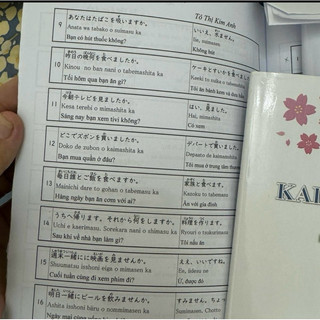 Tô Thị Kim Anh
9
あなたはたばこを吸いますか。
Anata wa tabako o suimasu ka
Bạn có hút thuốc không?
いいえ、吸ません。
Iie, suimasen
Không hút
10
昨日の晩何を食べましたか。
Kinou no ban nani o tabemashita ka
Tối hôm qua bạn ăn gì?
ケーキとすいかを食べました。
Tôi ăn bánh kem và dưa
11
今朝テレビを見ましたか。
Kesa terebi o mimashita ka
Sáng nay bạn xem tivi không?
はい、見ました。
Hai, mimashita
Có xem
12
どこでズボンを買いましたか。
Doko de zubon o kaimashita ka
Bạn mua quần ở đâu?
デパートで買いました。
Depaato de kaimashita
13
毎日誰とご飯を食べますか。
Mainichi dare to gohan o tabemasu ka
Hàng ngày bạn ăn cơm với ai?
家族と食べます。
Kazoku to tabemasu
Ăn với gia đình
14
うちへ帰ります。それから何をしますか。
Uchi e kaerimasu. Sorekara nani o shimasu ka
Sau khi về nhà bạn làm gì?
料理を作ります。
Ryouri o tsukurimasu
Tôi nấu ăn
15
週末一緒にに映画を見ませんか。
Shuumatsu issho ni eiga o mimasen ka
Cuối tuần cùng đi xem phim không?
ええ、いいですね。
Ee, iidesu ne
Ừ, được đó
16
明日一緒にビールを飲みませんか。
Ashita issho ni biiru o nomimasen ka
Ngày mai cùng uống
すみません、ちょっ
KAI